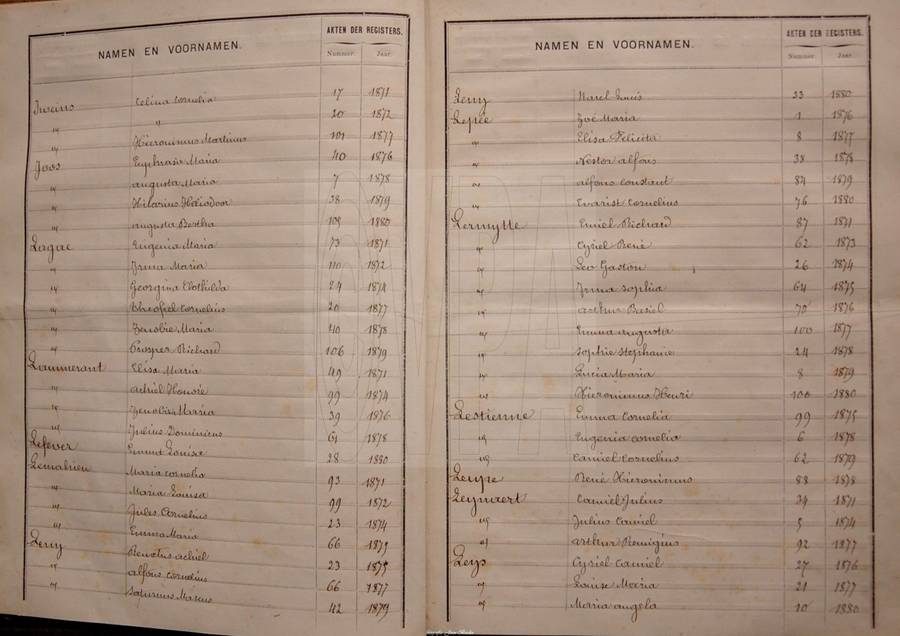 NAMEN EN VOORNAMEN. AKTEN DER REGISTERS.
Nummer Jaar
Iweins Celina Cornelia 17 1871
" " 20 1872
" Hieronimus Martinus 101 1877
Joos Euphrasia Maria 40 1876
" Augusta Maria 7 1878
" Hilarius Heliodoor 38 1879
" Augusta Bertha 109 1880
Lagae Eugenia Maria 73 1871
" Irma Maria 110 1872
" Georgina Clothilda 24 1874
" Theofiel Cornelius 20 1877
" Zenobie Maria 40 1878
" Prosper Richard 106 1879
Lammerant Elisa Maria 49 1871
" Achiel Honoré 99 1874
" Zenobie Maria 39 1876
" Julius Dominicus 61 1878
Lefever Louisa 28 1880
Lemahieu Maria Cornelia 93 1871
" Maria Louisa 99 1872
" Jules Cornelius 23 1874
" Emma Maria 66 1875
Leroy Renatus Achiel 23 1875
" Alfons Cornelius 66 1877
" Marcus 42 1879
NAMEN EN VOORNAMEN. AKTEN DER REGISTERS.
Nummer Jaar
Leroy Karel Louis 33 1880
Lepée Zoé Maria 1 1876
" Elisa Felicita 8 1877
" Nestor Alfons 38 1878
" Alfons Constant 84 1879
" Evarist Cornelius 76 1880
Lermytte Emiel Richard 87 1871
" Cyriel René 62 1873
" Leo Gaston 26 1874
" Irma Sophia 64 1875
" Arthur Basiel 70 1876
" Emma Augusta 100 1877
" Sophie Stephanie 24 1878
" Lucia Maria 8 1879
" Hieronimus Henri 100 1880
Lestienne Emma Cornelia 99 1875
" Eugenia Cornelia 6 1878
" Camiel Cornelius 62 1879
Leupe René Hieronimus 88 1878
Leynaert Camiel Julius 34 1871
" Julius Camiel 5 1874
" Arthur Remigius 92 1877
Leys Cyriel Camiel 27 1876
" Louise Maria 21 1877
" Maria Angela 10 1880